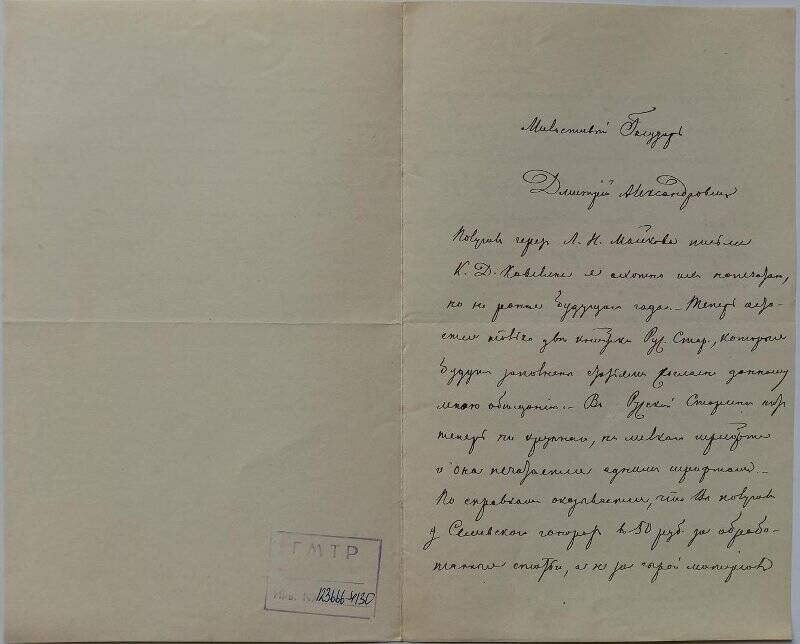 Милостивый Государь
Дмитрий Александрович
Получив через Л. Н. Майкова письма
К. Д. Кавелина я охотно их напечатаю,
но не ранее будущаго года. Теперь оста-
ется только две книжки Рус. Стар., которые
будут заполнены статьями согласно данному
мною обещанию. – В Русской Старине нет
теперь ни крупнаго, ни мелкаго шрифта
и она печатается одним шрифтом. –
По справкам оказывается, что Вы получали
у Семевскаго гонорар в 50 руб. за обрабо-
танные статьи, а не за сырой материал
ГМТР
Инв. № 123666-4130